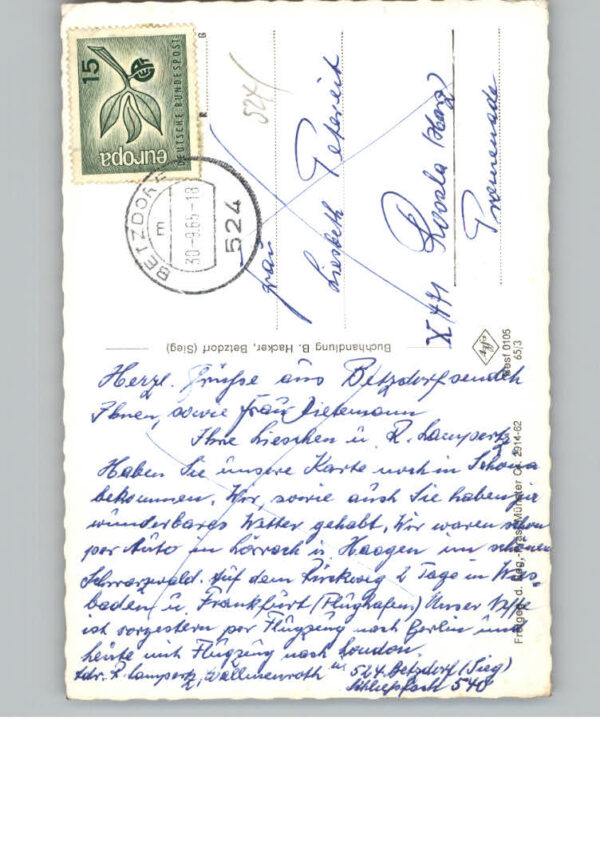 15
DEUTSCHE BUNDESPOST
europa
BETZDORF
m
30-9.65-18
524
524
Frau
Liesbeth
X 471
Promenade
Buchhandlung B. Hacker, Betzdorf (Sieg)
Best 0105
65/3
Herzl. Grüße aus Betzdorf senden
Ihnen, sowie Frau
Ihre Lieschen u. R. Lampertz
Haben Sie unsere Karte noch in Schona
bekommen. Wir, sowie auch Sie haben ja
wunderbares Wetter gehabt. Wir waren schon
per Auto in Lörrach u. Haagen im schönen
Schwarzwald. Auf dem Rückweg 2 Tage in Wies-
baden u. Frankfurt (Flughafen) Unser Neffe
ist vorgestern per Flugzeug nach Berlin und
heute mit Flugzeug nach London.
Adr. R. Lampertz, Wallmenroth 524 Betzdorf (Sieg)
Schließfach 540